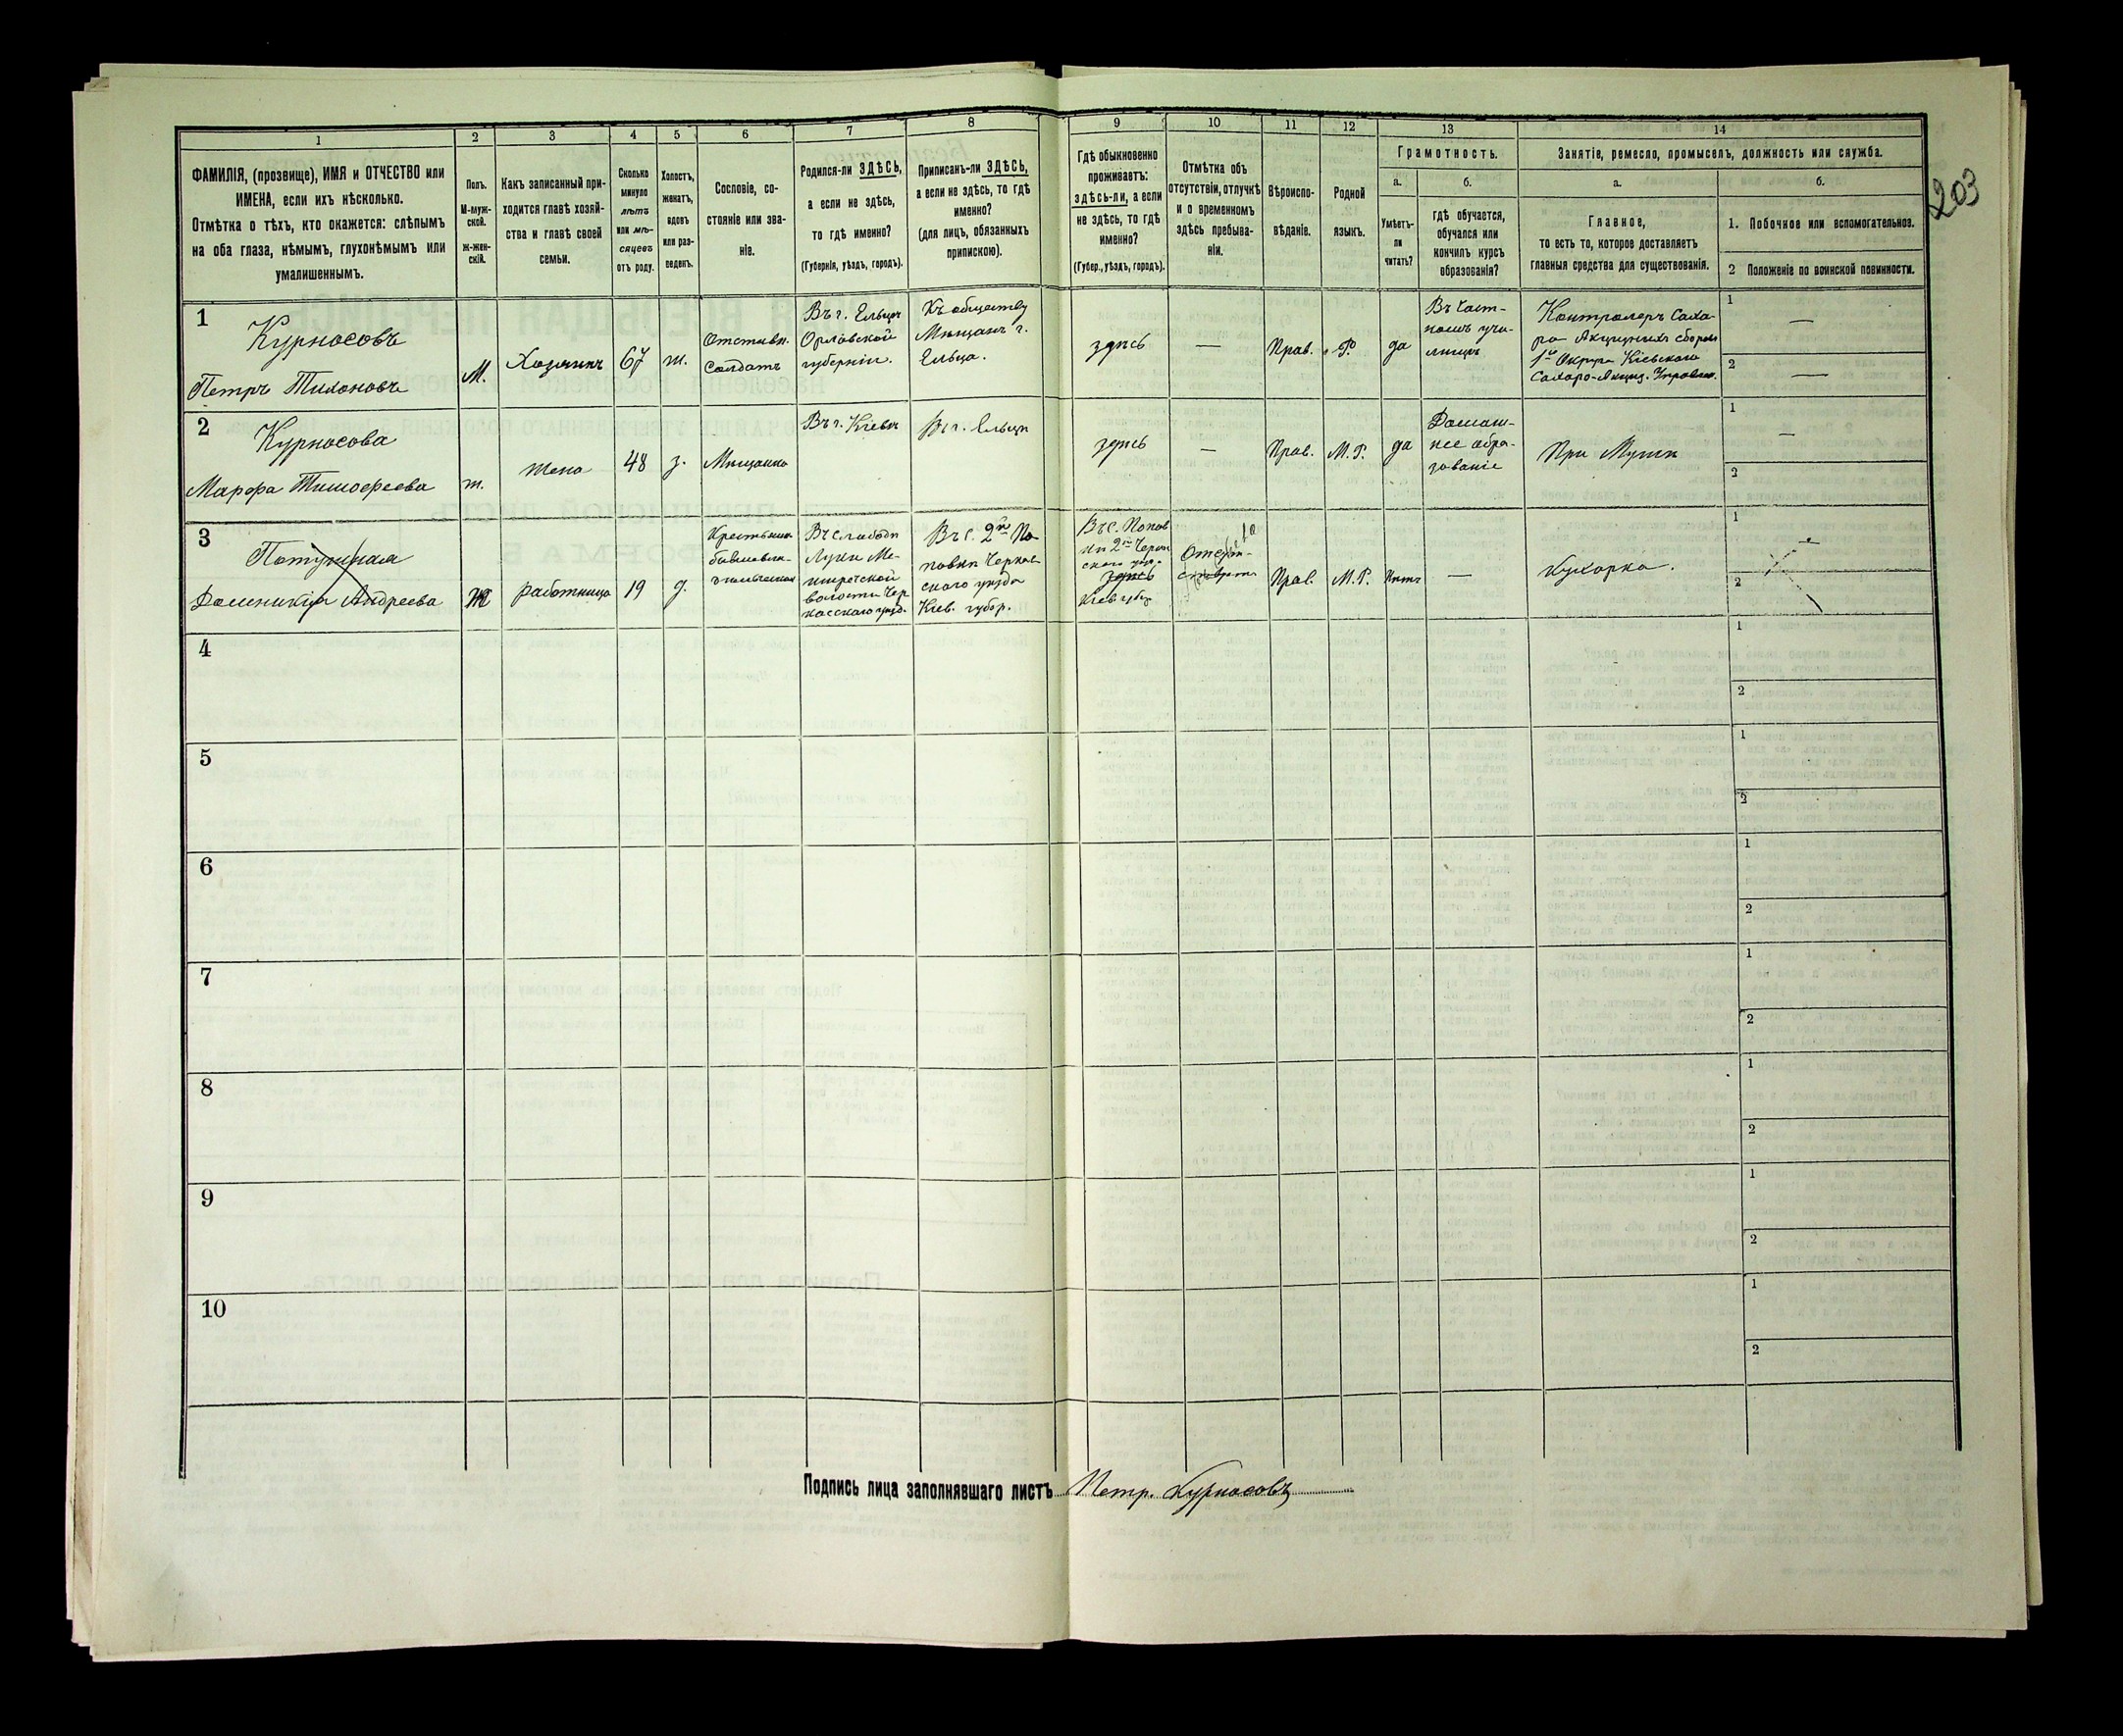 1 2 3 4 5 6 7 8 9 10 11 12 13 14
ФАМИЛІЯ, (прозвище), ИМЯ и ОТЧЕСТВО или
ИМЕНА, если ихъ нѣсколько.
Отмѣтка о тѣхъ, кто окажется: слѣпымъ
на оба глаза, нѣмымъ, глухонѣмымъ или
умалишеннымъ.
Полъ.
М-муж-
ской.
ж-жен-
скій.
Какъ записанный при-
ходится главѣ хозяй-
ства и главѣ своей
семьи.
Сколько
минуло
лѣтъ
или мѣ-
сяцевъ
отъ роду.
Холостъ,
женатъ,
вдовъ
или раз-
веденъ.
Сословіе, со-
стояніе или зва-
ніе.
Родился-ли ЗДѢСЬ,
а если не здѣсь,
то гдѣ именно?
(Губернія, уѣздъ, городъ).
Приписанъ-ли ЗДѢСЬ,
а если не здѣсь, то гдѣ
именно?
(для лицъ, обязанныхъ
припискою).
Гдѣ обыкновенно
проживаетъ:
здѣсь-ли, а если
не здѣсь, то гдѣ
именно?
(Губер., уѣздъ, городъ).
Отмѣтка объ
отсутствіи, отлучкѣ
и о временномъ
здѣсь пребыва-
ніи.
Вѣроиспо-
вѣданіе.
Родной
языкъ.
Грамотность.
а.
Умѣетъ-
ли
читать?
б.
гдѣ обучается,
обучался или
кончилъ курсъ
образованія?
Занятіе, ремесло, промыселъ, должность или служба.
а.
Главное,
то есть то, которое доставляетъ
главныя средства для существованія.
б.
1. Побочное или вспомогательное.
2 Положеніе по воинской повинности.
203
1
Курносовъ
Петръ Тихоновъ
М.
Хозяинъ
67
ж.
Отставн.
Солдатъ
Въ г. Ельцѣ
Орловской
губерніи.
Къ обществу
Мѣщанъ г.
Ельца.
здѣсь
—
Прав.
Р.
да
Въ Част-
номъ учи-
лищѣ
Контролеръ Саха-
ро Акцизныхъ сборовъ
1го Округа Кіевскаго
Сахаро-Акциз. Управлен.
1
—
2
—
2
Курносова
Марфа Тимофеева
ж.
жена
48
з.
Мѣщанка
Въ г. Кіевѣ
Въ г. Ельцѣ
здѣсь
—
Прав.
М.Р.
да
Домаш-
нее обра-
зованіе
При Мужѣ
1
—
2
3
Доменикія Андреева
Ж
работница
19
д.
Въ слободѣ
волости Чер
касскаго уѣзд.
Въ с. 2й По
повкѣ Черкас
скаго уѣзда
Кіев. губер.
здѣсь
Кіев губер
Прав.
М.Р.
Нѣтъ
—
Кухарка.
1
2
4
1
2
5
1
2
6
1
2
7
1
2
8
1
2
9
1
2
10
1
2
Подпись лица заполнявшаго листъ Петр. Курносовъ